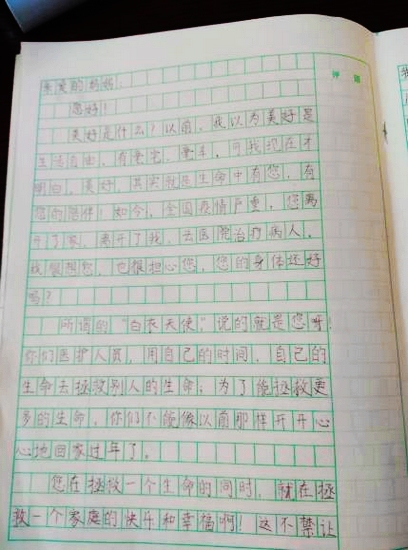 亲爱的妈妈：
评 语
您好！
美好是什么？以前，我以为美好是
生活自由，有豪宅，豪车，可我现在才
明白，美好，其实就是生命中有您，有
您的陪伴！如今，全国疫情严重，您离
开了家，离开了我，去医院治疗病人，
我很想您，也很担心您，您的身体还好
吗？
所谓的“白衣天使”，说的就是您呀！
你们医护人员，用自己的时间，自己的
生命去拯救别人的生命；为了能拯救更
多的生命，你们不能像以前那样开开心
心地回家过年了。
您在拯救一个生命的同时，就在拯
救一个家庭的快乐和幸福啊！这不禁让